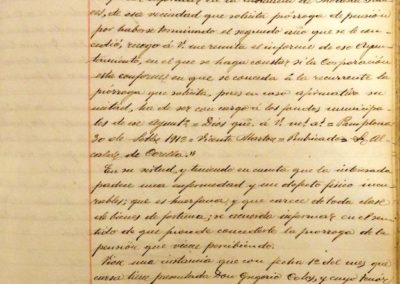 des, de esa vecindad que solicita prórroga de pensión
por haberse terminado el segundo año que se le con-
cedió, ruego á V. me remita el informe de ese Ayun-
tamiento, en el que se haga constar si la Corporación
esta conforme en que se conceda á la recurrente la
prórroga que solicita, pues en caso afirmativo su
mitad, ha de ser con cargo á los fondos municipa-
les de ese Ayuntº = Dios gue. á V. ms. as. = Pamplona
30 de Sebre 1912 = Vicente = Rubricado = Sr Al-
calde de Corella."
En su virtud, y teniendo en cuenta que la interesada
padece una enfermedad y un defecto físico incu-
rables; que es huerfana, y que carece de toda clase
de bienes de fortuna, se acuerda informar en el sen-
tido de que puede concederle la prórroga de la
pensión que viene percibiendo.
Vista una instancia que con fecha 12 del mes que
cursa tiene presentada Don Gregorio y cuyo